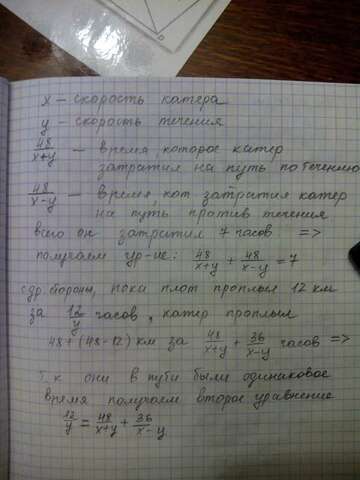 x – скорость катера
y – скорость течения
48/(x+y) – время, которое катер
затратил на путь по течению
48/(x-y) – время, кот. затратил катер
на путь против течения
всего он затратил 7 часов =>
получаем ур-ие: 48/(x+y) + 48/(x-y) = 7
с др. стороны, пока плот проплыл 12 км
за 12/y часов, катер проплыл
48+(48-12) км за 48/(x+y) + 36/(x-y) часов =>
т.к они в пути были одинаковое
время получаем второе уравнение
12/y = 48/(x+y) + 36/(x-y)